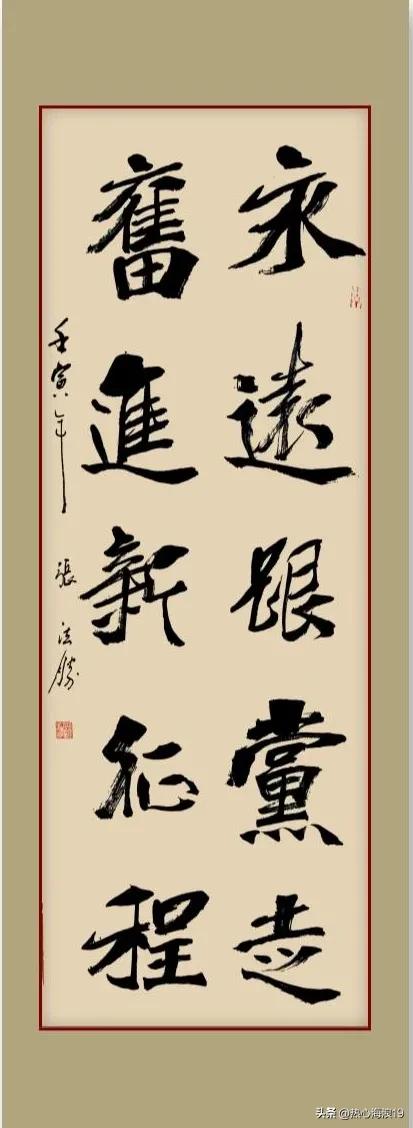 永遠跟黨走
奮進新征程
壬寅年 張法勝
头条 @热心海浪19